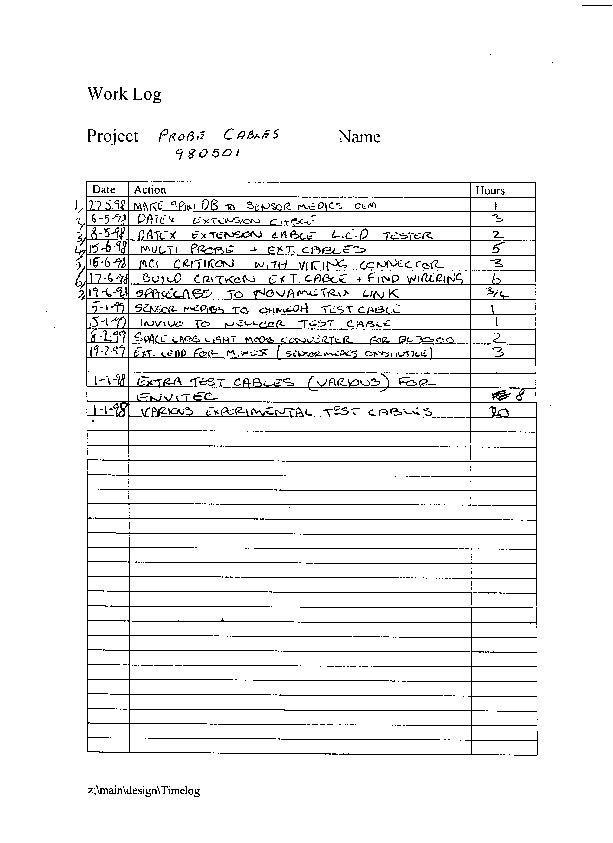 Work Log
Project PROBE CABLES Name
980501
Date Action Hours
1, 27.5.98 MAKE 9PIN DB TO SENSOR MEDICS OEM 1
2, 6-5-98 DATEX EXTENSION CABLE 3
3, 8-5-98 DATEX EXTENSION CABLE L.C.D TESTER 2
4, 15-6-98 MULTI PROBE + EXT. CABLES 5
5, 16-6-98 MCI CRITIKON WITH VIKING CONNECTOR 3
6, 17-6-98 BUILD CRITIKON EXT. CABLE + FIND WIRERING 6
7, 19-6-98 SPACELABS TO NOVAMETRIX LINK 3/4
5-1-99 SENSOR MEDICS TO OHMEDA TEST CABLE 1
5-1-99 INVIVO TO NELLCOR TEST CABLE 1
8-2.99 SPACE LABS LIGHT MODS CONVERTER FOR 2
19-2-99 EXT. LEAD FOR (SENSOR MEDICS 3
1-1-98 EXTRA TEST CABLES (VARIOUS) FOR
ENVITEC 8
1-1-98 VARIOUS EXPERIMENTAL TEST CABLES 20
z:\main\design\Timelog